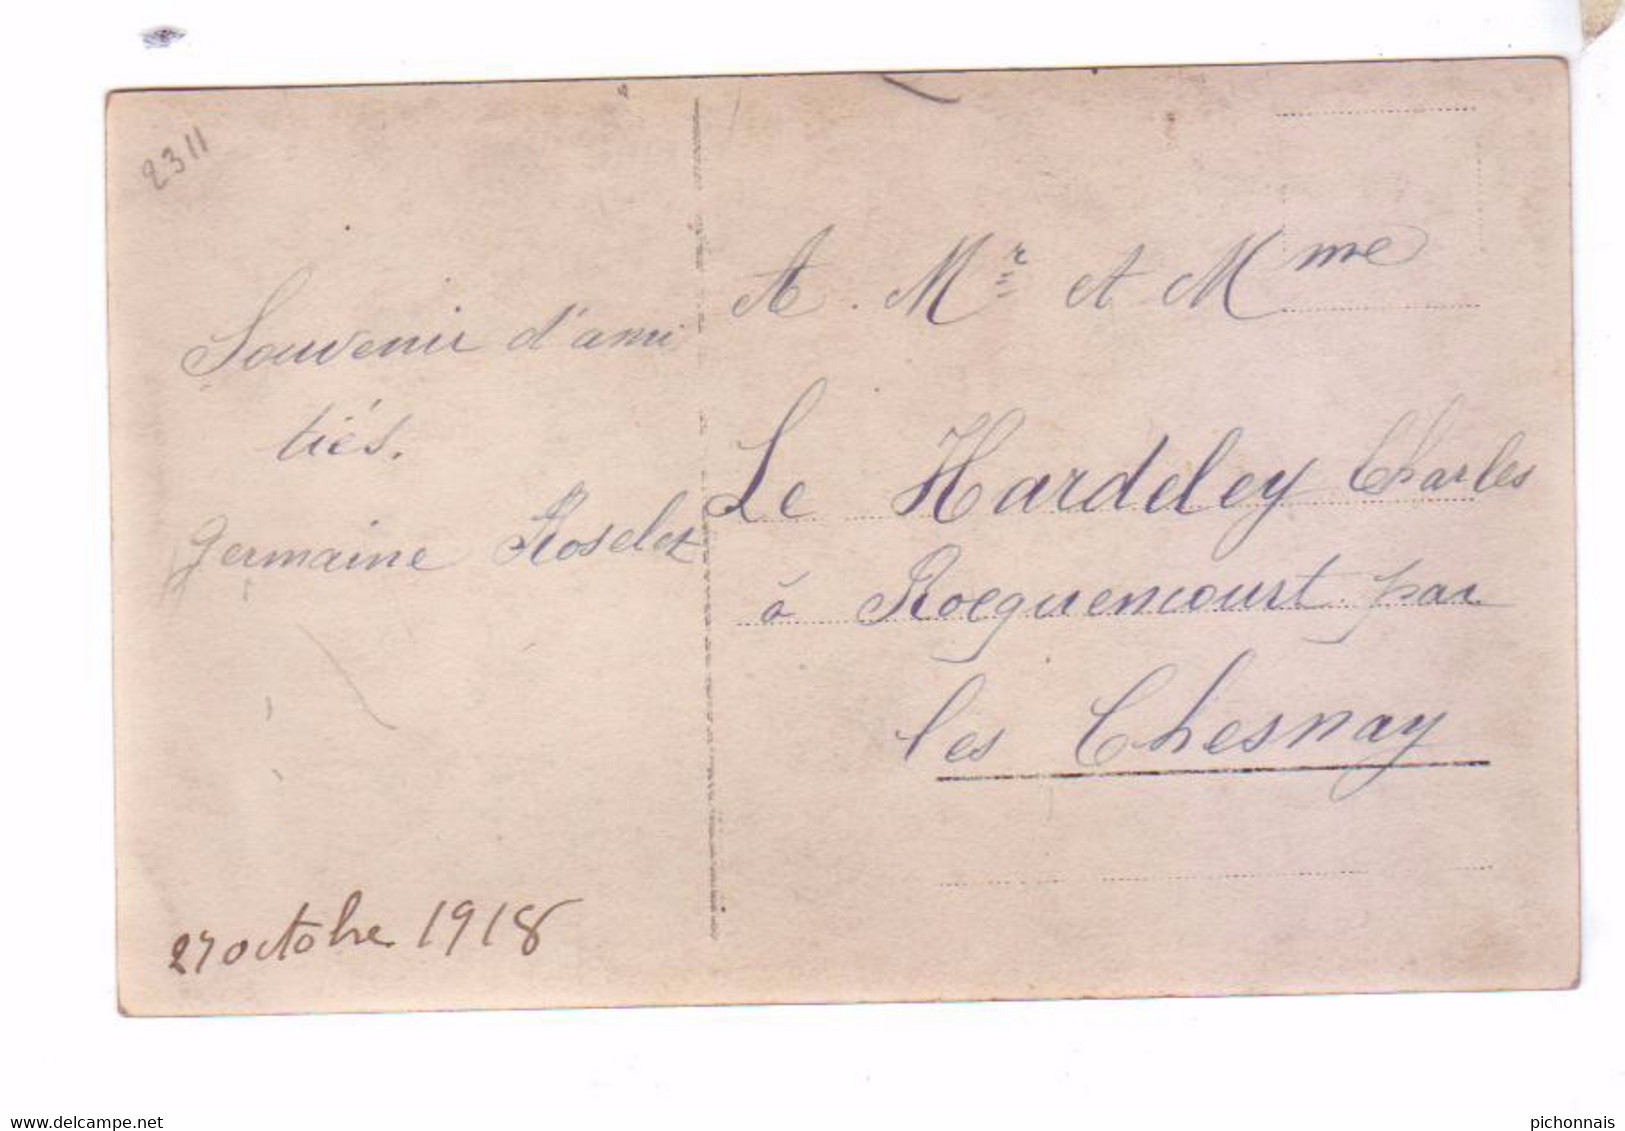 2311
Souvenir d'ami
tiés.
germaine Roselet
27 octobre 1918
A. Mr et Mme
Le Hardeley Charles
à Rocquencourt par
les Chesnay
www.delcampe.net
pichonnais